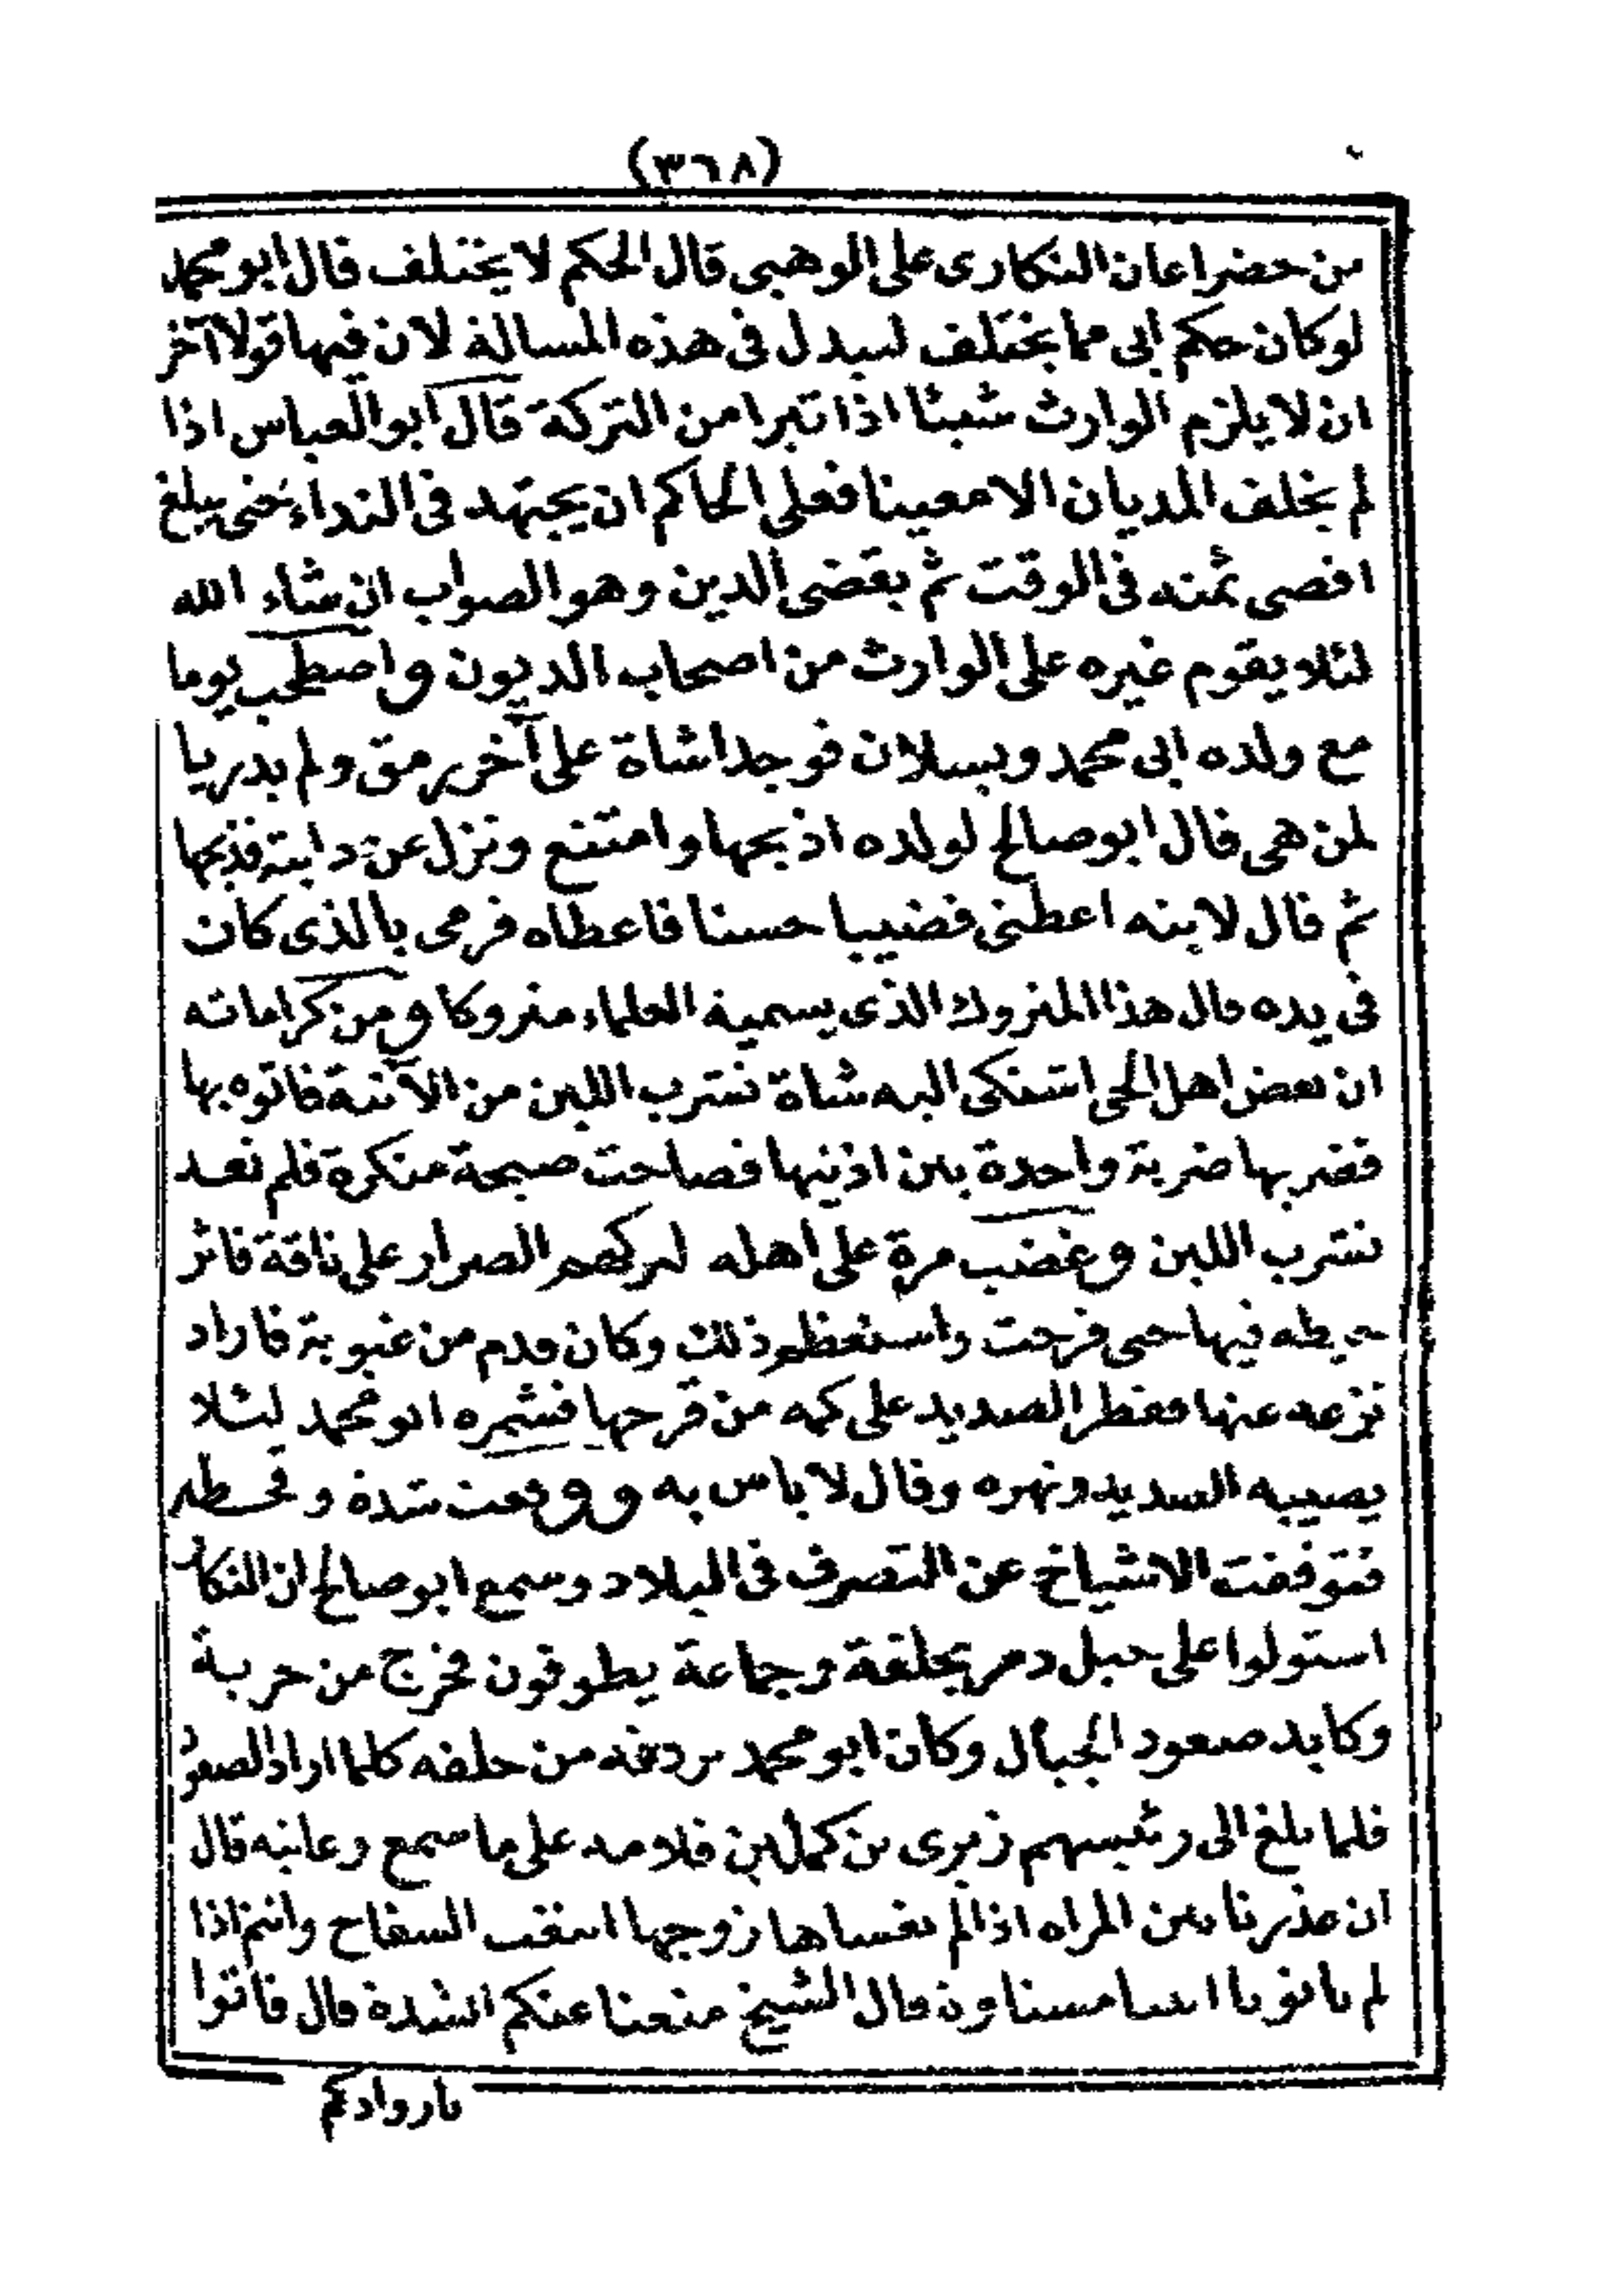 (٣٦٨)
من حضر اعان النكارى على الوهبى قال الحكم لا يختلف قال ابو محمد
لو كان حكم ابى مما يختلف لتبدل فى هذه المسالة لان فيها قولا آخر
ان لا يلزم الوارث شيئا اذا تبرا من التركة قال ابو العباس اذا
لم يخلف المديان الا معينا فعلى الحاكم ان يجتهد فى النداء حتى يبلغ
اقصى ثمنه فى الوقت ثم يقضى الدين وهو الصواب ان شاء الله
لئلا يقوم غيره على الوارث من اصحاب الديون واصطحب يوما
مع ولده ابى محمد ويسلان فوجدا شاة على آخر رمق ولم يدريا
لمن هى قال ابو صالح لولده اذبحها وامتنع ونزل عن دابته فذبحها
ثم قال لابنه اعطنى قضيبا حسنا فاعطاه فرمى بالذى كان
فى يده قال هذا المتروك الذى يسميه العلماء متروكا ومن كراماته
ان بعض اهل الحى اشتكى اليه شاة تشرب اللبن من الآنية فاتوه بها
فضربها ضربة واحدة بين اذنيها فصاحت صيحة منكرة فلم تعد
تشرب اللبن وغضب مرة على اهله لتركهم الصرار على ناقة فاثر
خيطه فيها حتى قرحت واستعظم ذلك وكان قدم من غيوبة فاراد
نزعه عنها فقطر الصديد على كمه من قرحها فشمره ابو محمد لئلا
يصيبه السديد ونهره وقال لا باس به ووقعت شدة وقحطه
فتوقفت الاشياخ عن التصرف فى البلاد وسمع ابو صالح ان النكار
استولوا على جبل دمر بحلقة وجماعة يطوفون فخرج من جربة
وكابد صعود الجبال وكان ابو محمد يردفه من خلفه كلما اراد الصعود
فلما بلغ الى رئيسهم زيرى بن كملين فلامه على ما سمع وعاتبه قال
ان عذرنا بين المراه اذا لم زوجها السفاح وانتم اذا
لم قال الشيخ منعنا عنكم الشدة قال فاتوا